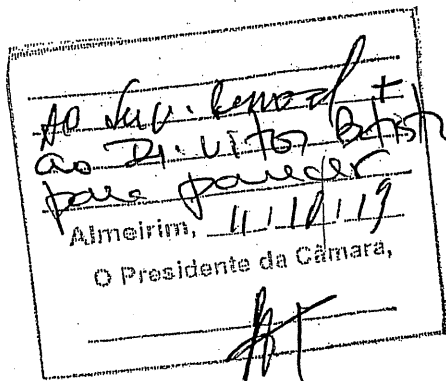 Ao Serv. +
ao Dr. Vitor Batista
para parecer
Almeirim, 11/10/19
O Presidente da Câmara,